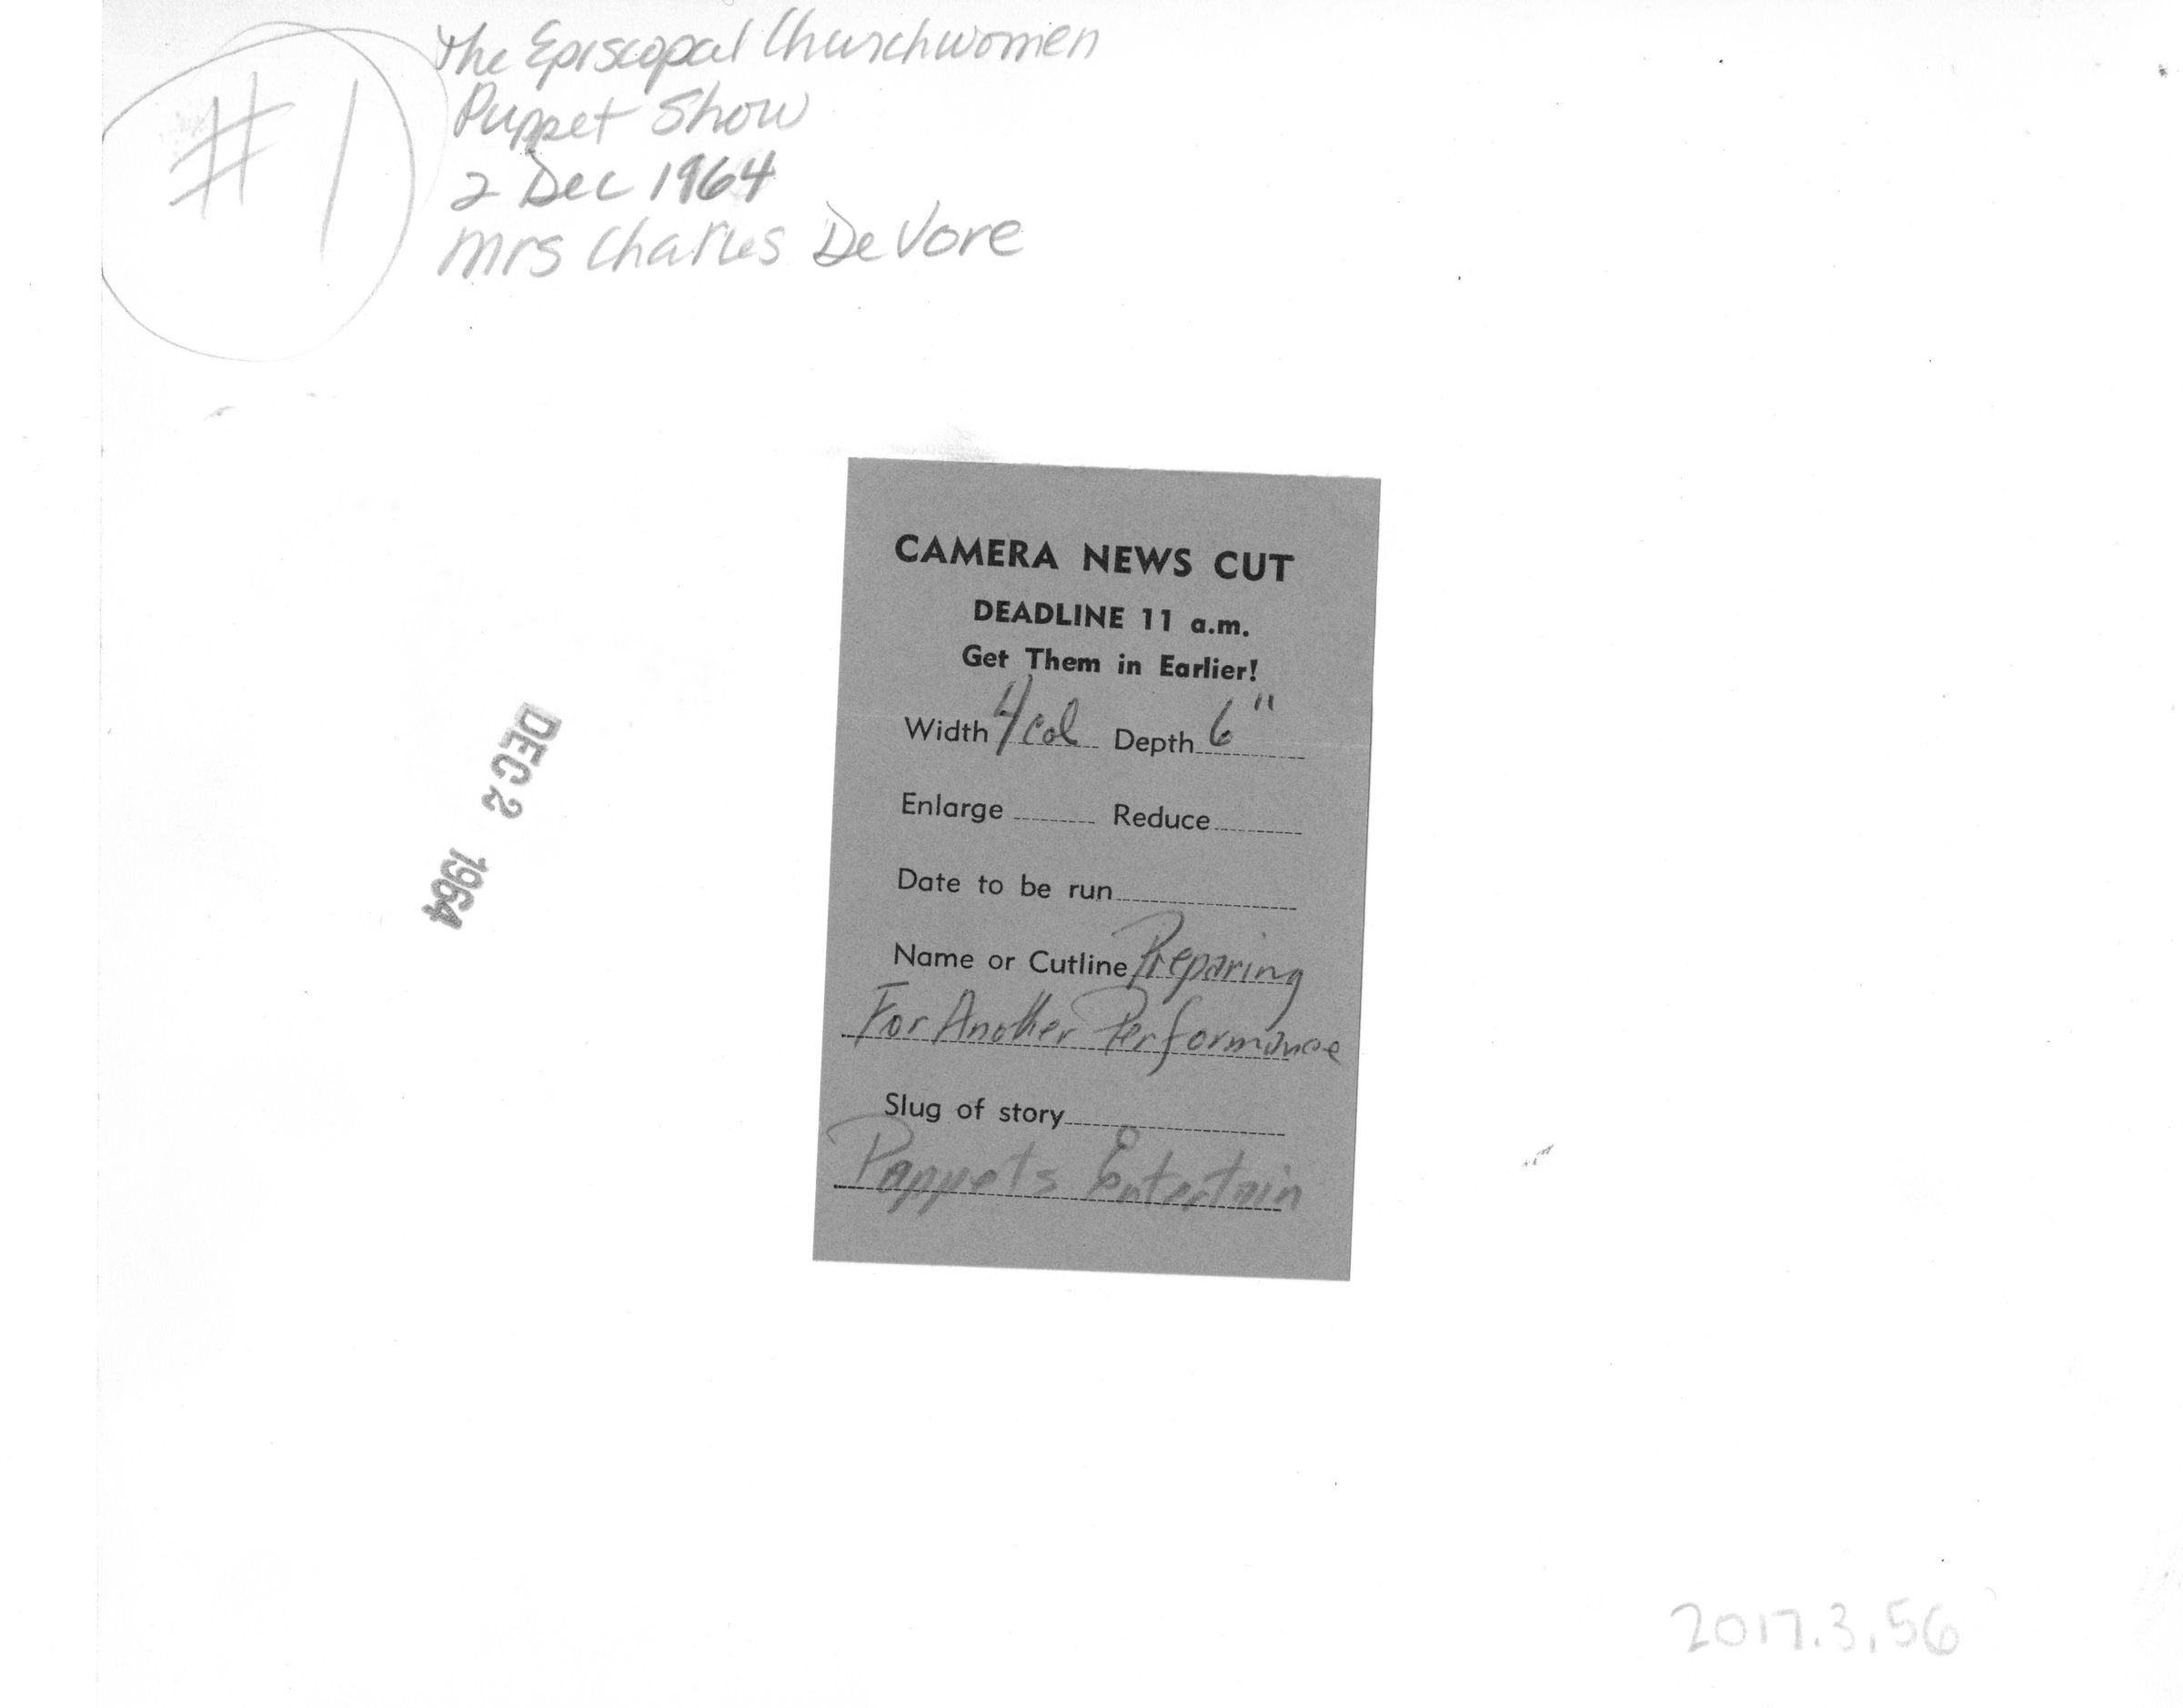 #1
The Episcopal Churchwomen
Puppet Show
2 Dec 1964
Mrs Charles DeVore
DEC 2 1964
CAMERA NEWS CUT
DEADLINE 11 a.m.
Get Them in Earlier!
Width 4 col Depth 6"
Enlarge Reduce
Date to be run
Name or Cutline Preparing
For Another Performance
Slug of story
Puppets Entertain
2017.3.56